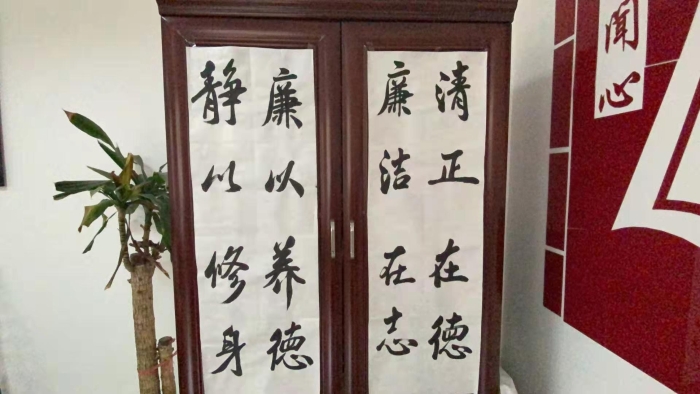 清正在德
廉洁在志
廉以养德
静以修身
闻心